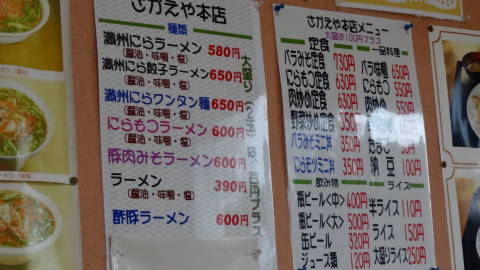 さかえや本店
種類
満州にらラーメン 580円
(醤油・味噌・塩)
満州にら餃子ラーメン 650円
(醤油・味噌・塩)
満州にらワンタン麺 650円
(醤油・味噌・塩)
にらもつラーメン 600円
(醤油・味噌・塩)
豚肉みそラーメン 600円
ラーメン 390円
(醤油・味噌・塩)
酢豚ラーメン 600円
大盛り
は、百円プラス
さかえや本店メニュー
大盛は100円プラス
定食
バラみそ定食 730円
にらもつ定食 630円
肉炒め定食 630円
野菜炒め定食 550円
バラみそミニ丼 350円
にらモツミニ丼 350円
飲み物
瓶ビール<中> 400円
瓶ビール<大> 500円
缶ビール 320円
ジュース類 120円
一品料理
バラ味噌 650円
にらもつ 550円
肉炒め 550円
納豆 100円
ライス
半ライス 110円
ライス 150円
大盛りライス 250円